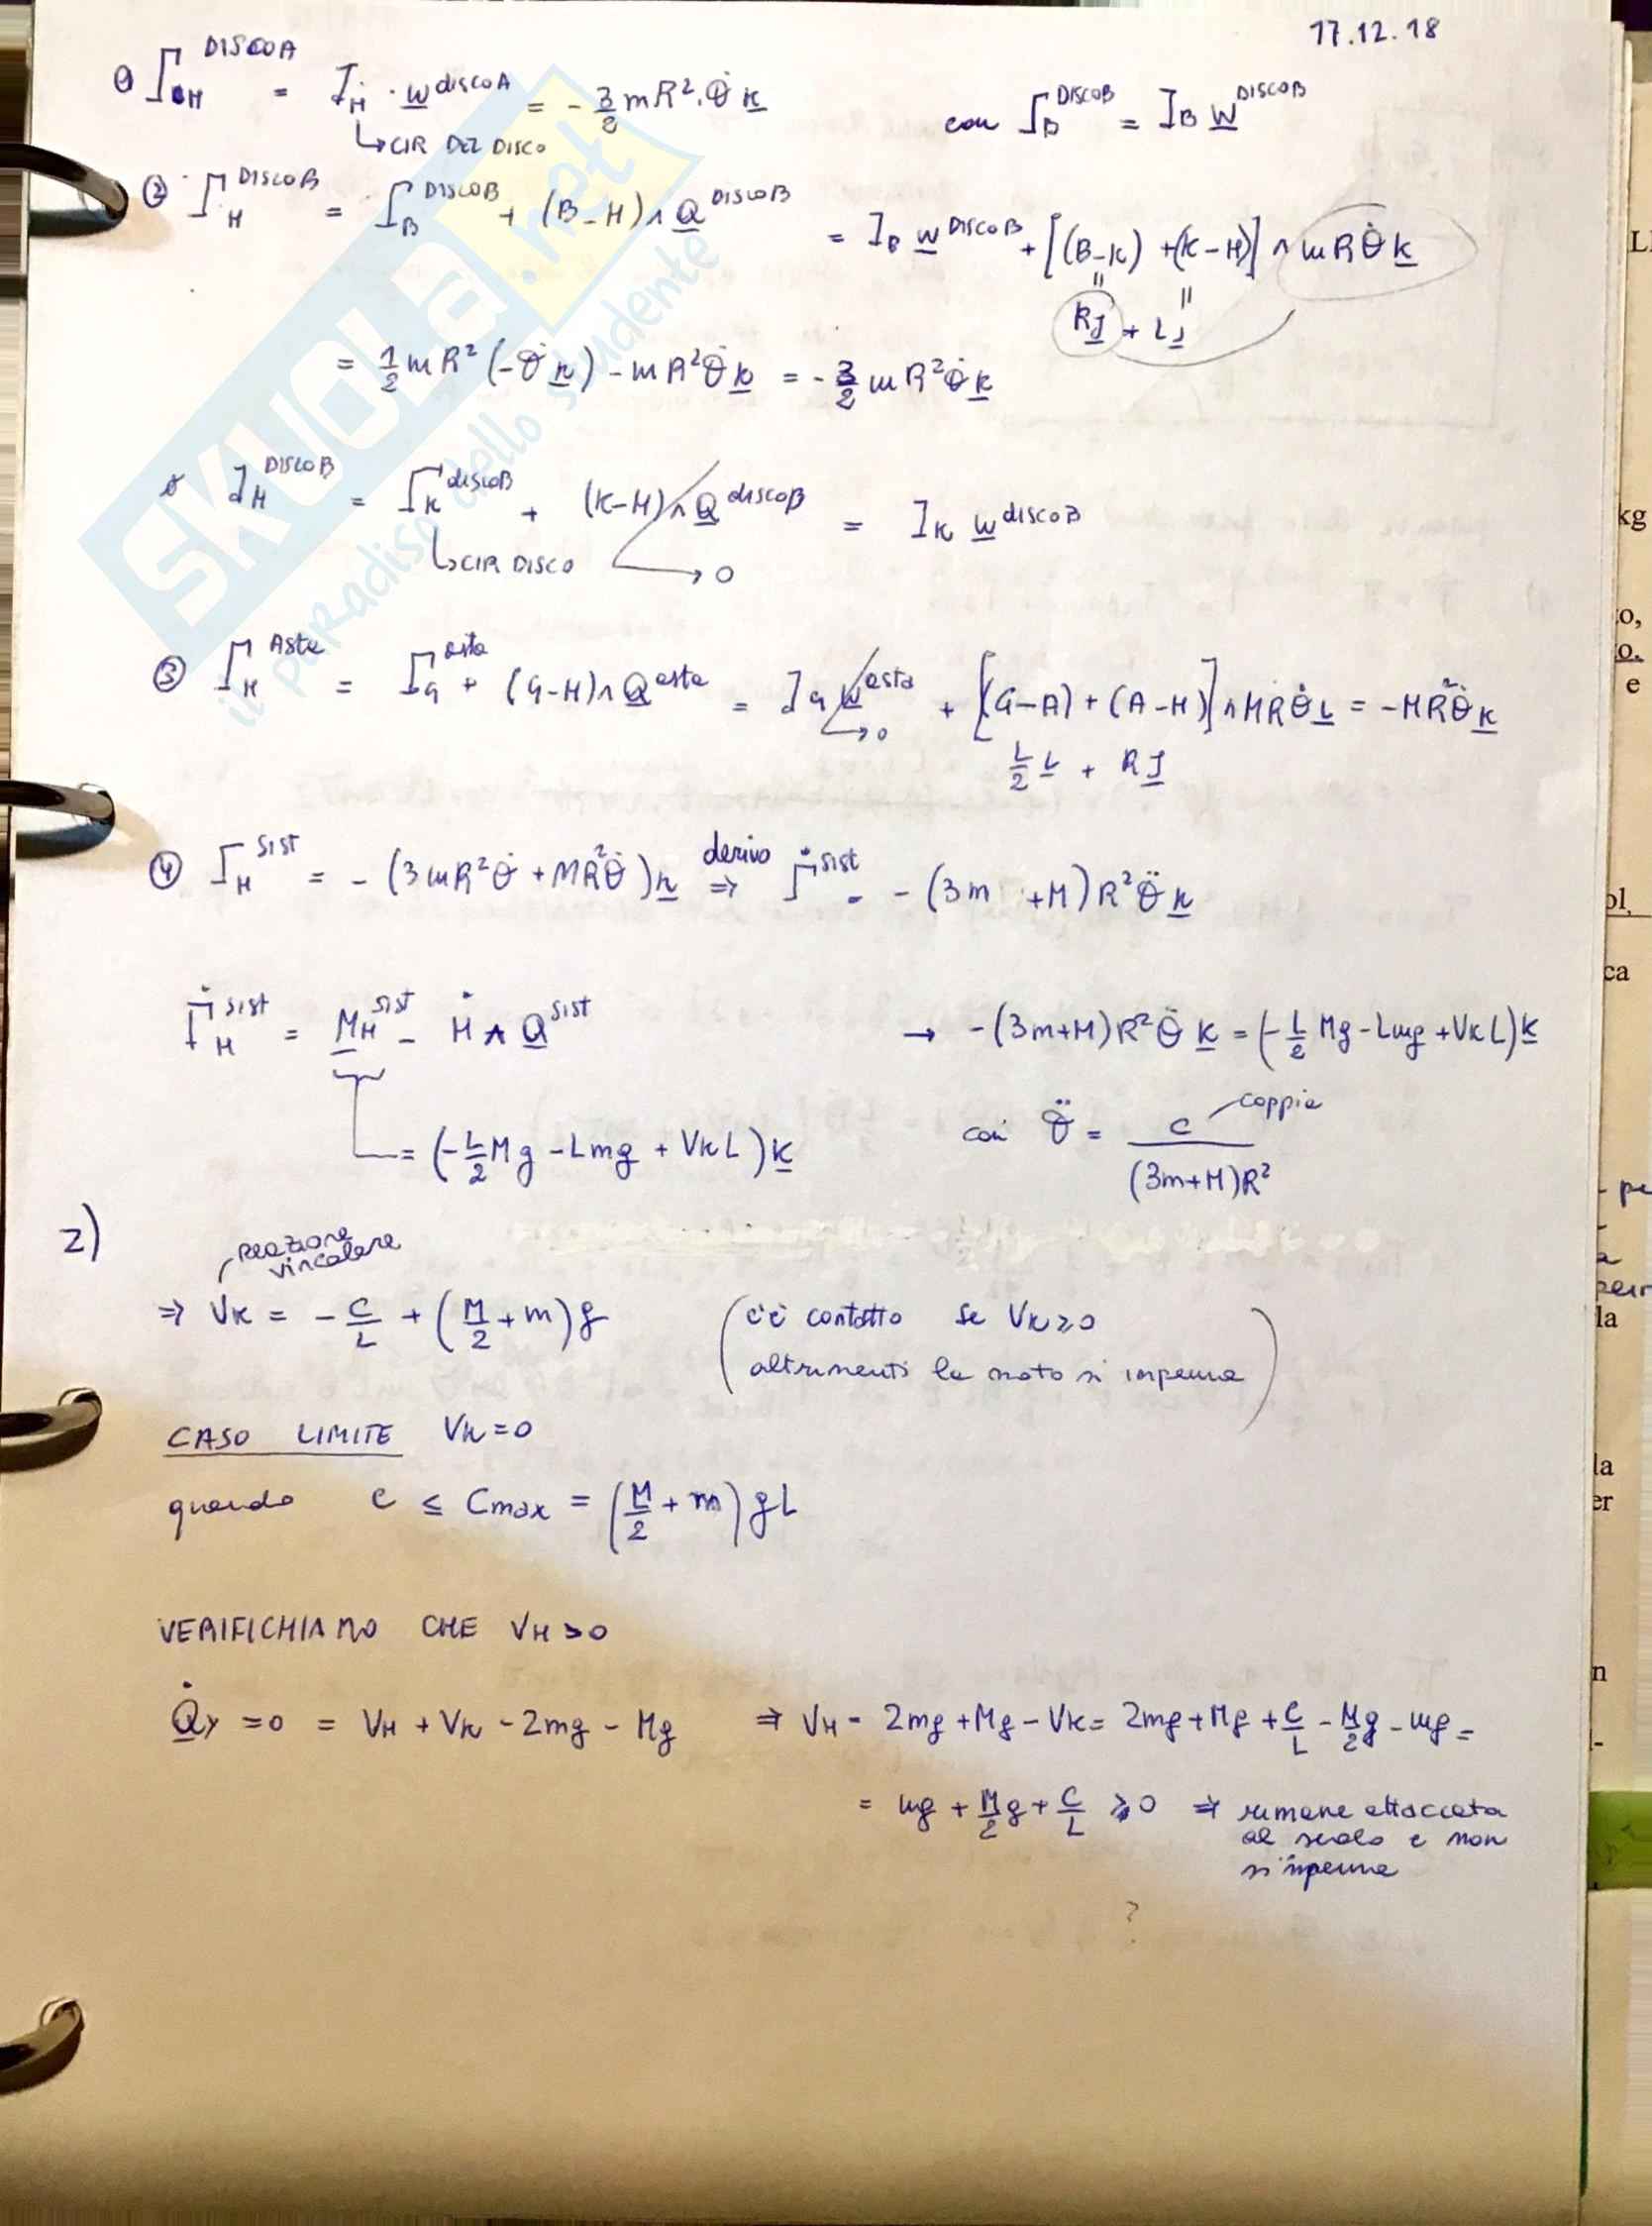 17.12.18
① Γ_H^DISCOA = I_H · w^discoA = - 3/2 mR² · θ̇ k
↳ CIR DEL DISCO
con Γ_B^DISCOB = I_B w^DISCOB
② Γ_H^DISCOB = Γ_B^DISCOB + (B-H) ∧ Q^DISCOB = I_B w^DISCOB + [(B-K) + (K-H)] ∧ mRθ̇ k
RJ + LJ
= 1/2 mR² (-θ̇ k) - mR²θ̇ k = - 3/2 mR²θ̇ k
Γ_H^DISCOB = Γ_K^discoB + (K-H) ∧ Q^discoB = I_K w^discoB
↳ CIR DISCO → 0
③ Γ_H^Asta = Γ_G^asta + (G-H) ∧ Q^asta = I_G w^asta + [(G-A) + (A-H)] ∧ MRθ̇ L = - MR²θ̇ k
→ 0
L/2 L + RJ
④ Γ_H^SIST = - (3mR²θ̇ + MR²θ̇) k derivo ⇒ Γ̇^SIST = - (3m + M)R²θ̈ k
Γ̇_H^SIST = M_H^SIST - Ḣ ∧ Q^SIST → - (3m+M)R²θ̈ k = (- L/2 Mg - Lmg + VK L) k
= (- L/2 Mg - Lmg + VK L) k
con θ̈ = C / (3m+M)R²
coppia
2)
reazione
vincolare
⇒ VK = - C/L + (M/2 + m) g
(c'è contatto se VK ≥ 0
altrimenti la moto si impenna)
CASO LIMITE VK = 0
quando C ≤ Cmax = (M/2 + m) gL
VERIFICHIAMO CHE VH > 0
Q̇y = 0 = VH + VK - 2mg - Mg ⇒ VH = 2mg + Mg - VK = 2mg + Mg + C/L - M/2 g - mg =
= mg + M/2 g + C/L ≥ 0 ⇒ rimane attaccata
al suolo e non
si impenna
?
SKUOLA.net
il paradiso dello studente
kg
o,
o.
e
ol,
ca
la
la
er
n
-